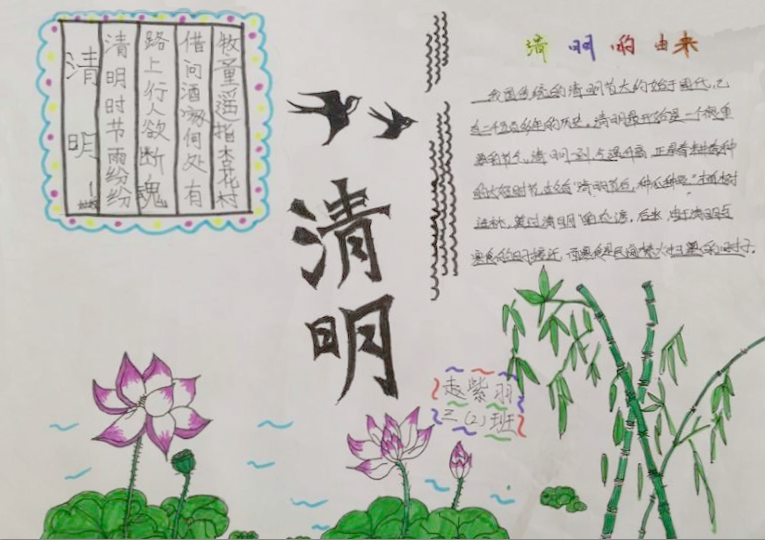 清明
清明时节雨纷纷
路上行人欲断魂
借问酒家何处有
牧童遥指杏花村
清明
清明的由来
我国传统的清明节大约始于周代,已
有二千五百多年的历史。清明最开始是一个很重
要的节气,清明一到,气温升高,正是春耕春种
的大好时节,故有“清明前后,种瓜种豆”。植树
造林,莫过清明”的农谚。后来,由于清明与
寒食的日子接近,而寒食是民间禁火扫墓的日子.
赵紫羽
三(2)班